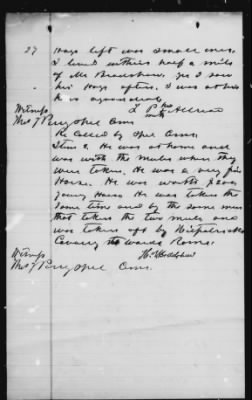 27 hogs left was small ones.
I lived within half a mile
of Mr Bradshaw. yes I saw
his hogs often. I was at his
his
Witness
mark
Thos J Perry Spel Com
Re called by Spel Com.
Item 2. He was at home and
was with the mules when they
were taken. He was a very fine
Horse. He was worth $200
young Horse He was taken the
same time and by the same men
that taken the two mules and
was taken off by Kilpatricks
Cavalry towards Rome.
Witness
Thos J Perry Spel Com.